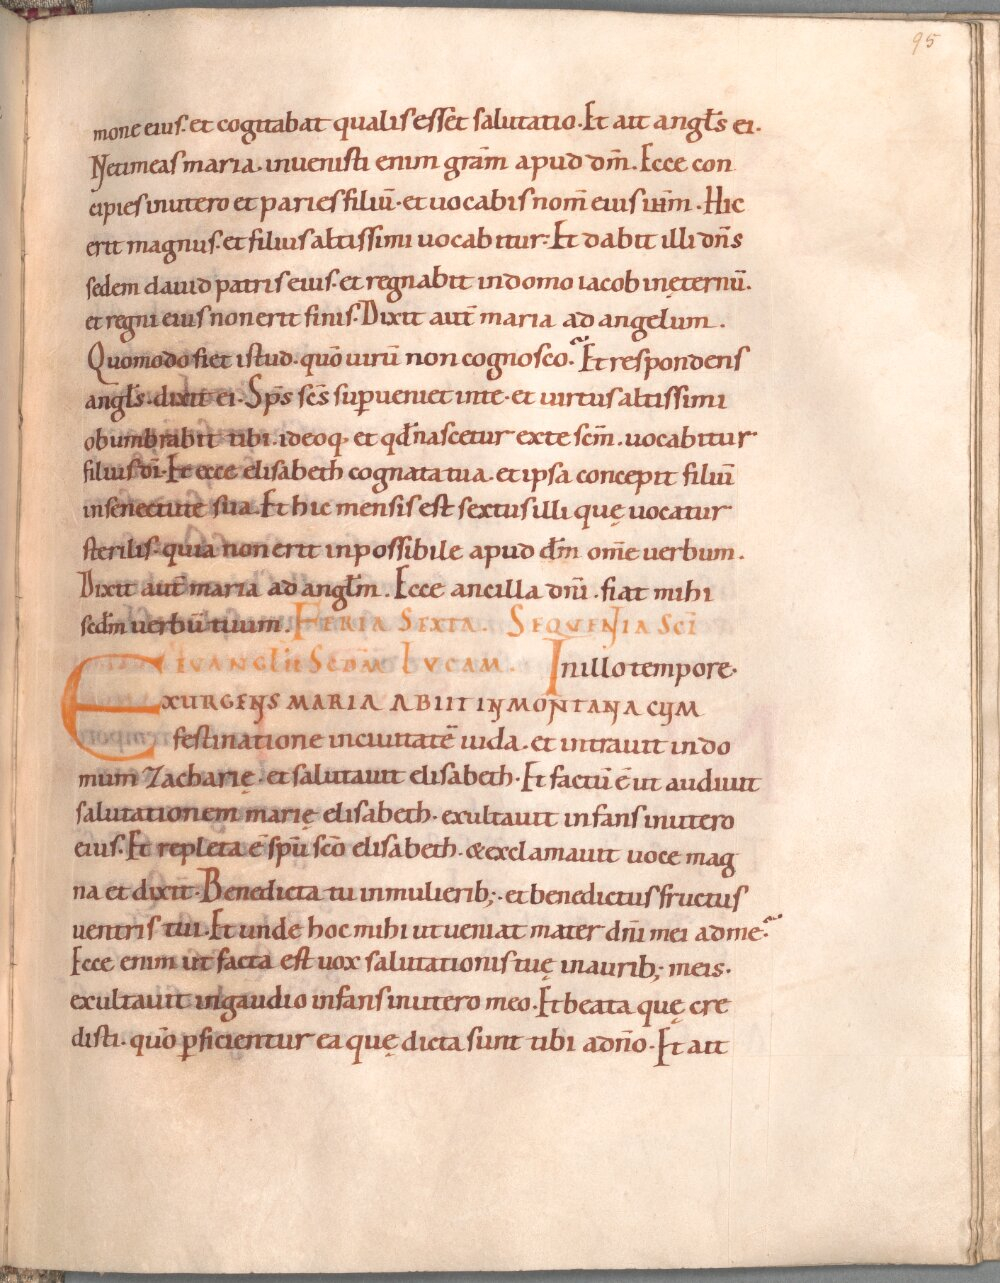 95
mone eius. et cogitabat qualis esset salutatio. Et ait angl̄s ei.
Netimeas maria. inuenisti enim grām apud dm̄. Ecce con
cipies inutero et paries filiū. et uocabis nom̄ eius iħm. Hic
erit magnus. et filius altissimi uocabitur. Et dabit illi dn̄s
sedem dauid patris eius. et regnabit indomo iacob inęternū.
et regni eius nonerit finis. Dixit aut̄ maria ad angelum.
Quomodo fiet istud. quō uirū non cognosco. Et respondens
angl̄s. dixit ei. Sp̄s sc̄s supueniet inte. et uirtus altissimi
obumbrabit tibi. ideoq. et qd̄ nascetur exte sc̄m. uocabitur
filius dī. Et ecce elisabeth cognata tua. et ipsa concepit filiū
insenectute sua. Et hic mensis est sextus illi quę uocatur
sterilis. quia nonerit inpossibile apud dm̄ om̄e uerbum.
Dixit aut̄ maria ad angl̄m. Ecce ancilla dn̄i. fiat mihi
scd̄m uerbū tuum. FERIA SEXTA. SEQUENTIA SC̄I
EUANGL̄II SCD̄M LUCAM. In illo tempore.
EXURGENS MARIA ABIIT IN MONTANA CUM
festinatione inciuitatē iuda. et intrauit indo
mum Zacharię. et salutauit elisabeth. Et factū ē ut audiuit
salutationem marię elisabeth. exultauit infans inutero
eius. Et repleta ē spū scō elisabeth. & exclamauit uoce mag
na et dixit. Benedicta tu inmulierib;. et benedictus fructus
uentris tui. Et unde hoc mihi ut ueniat mater dn̄i mei adme.
Ecce enim ut facta est uox salutationis tuę inaurib; meis.
exultauit ingaudio infans inutero meo. Et beata quę cre
disti. quō ꝑficientur ea quę dicta sunt tibi adn̄o. Et ait